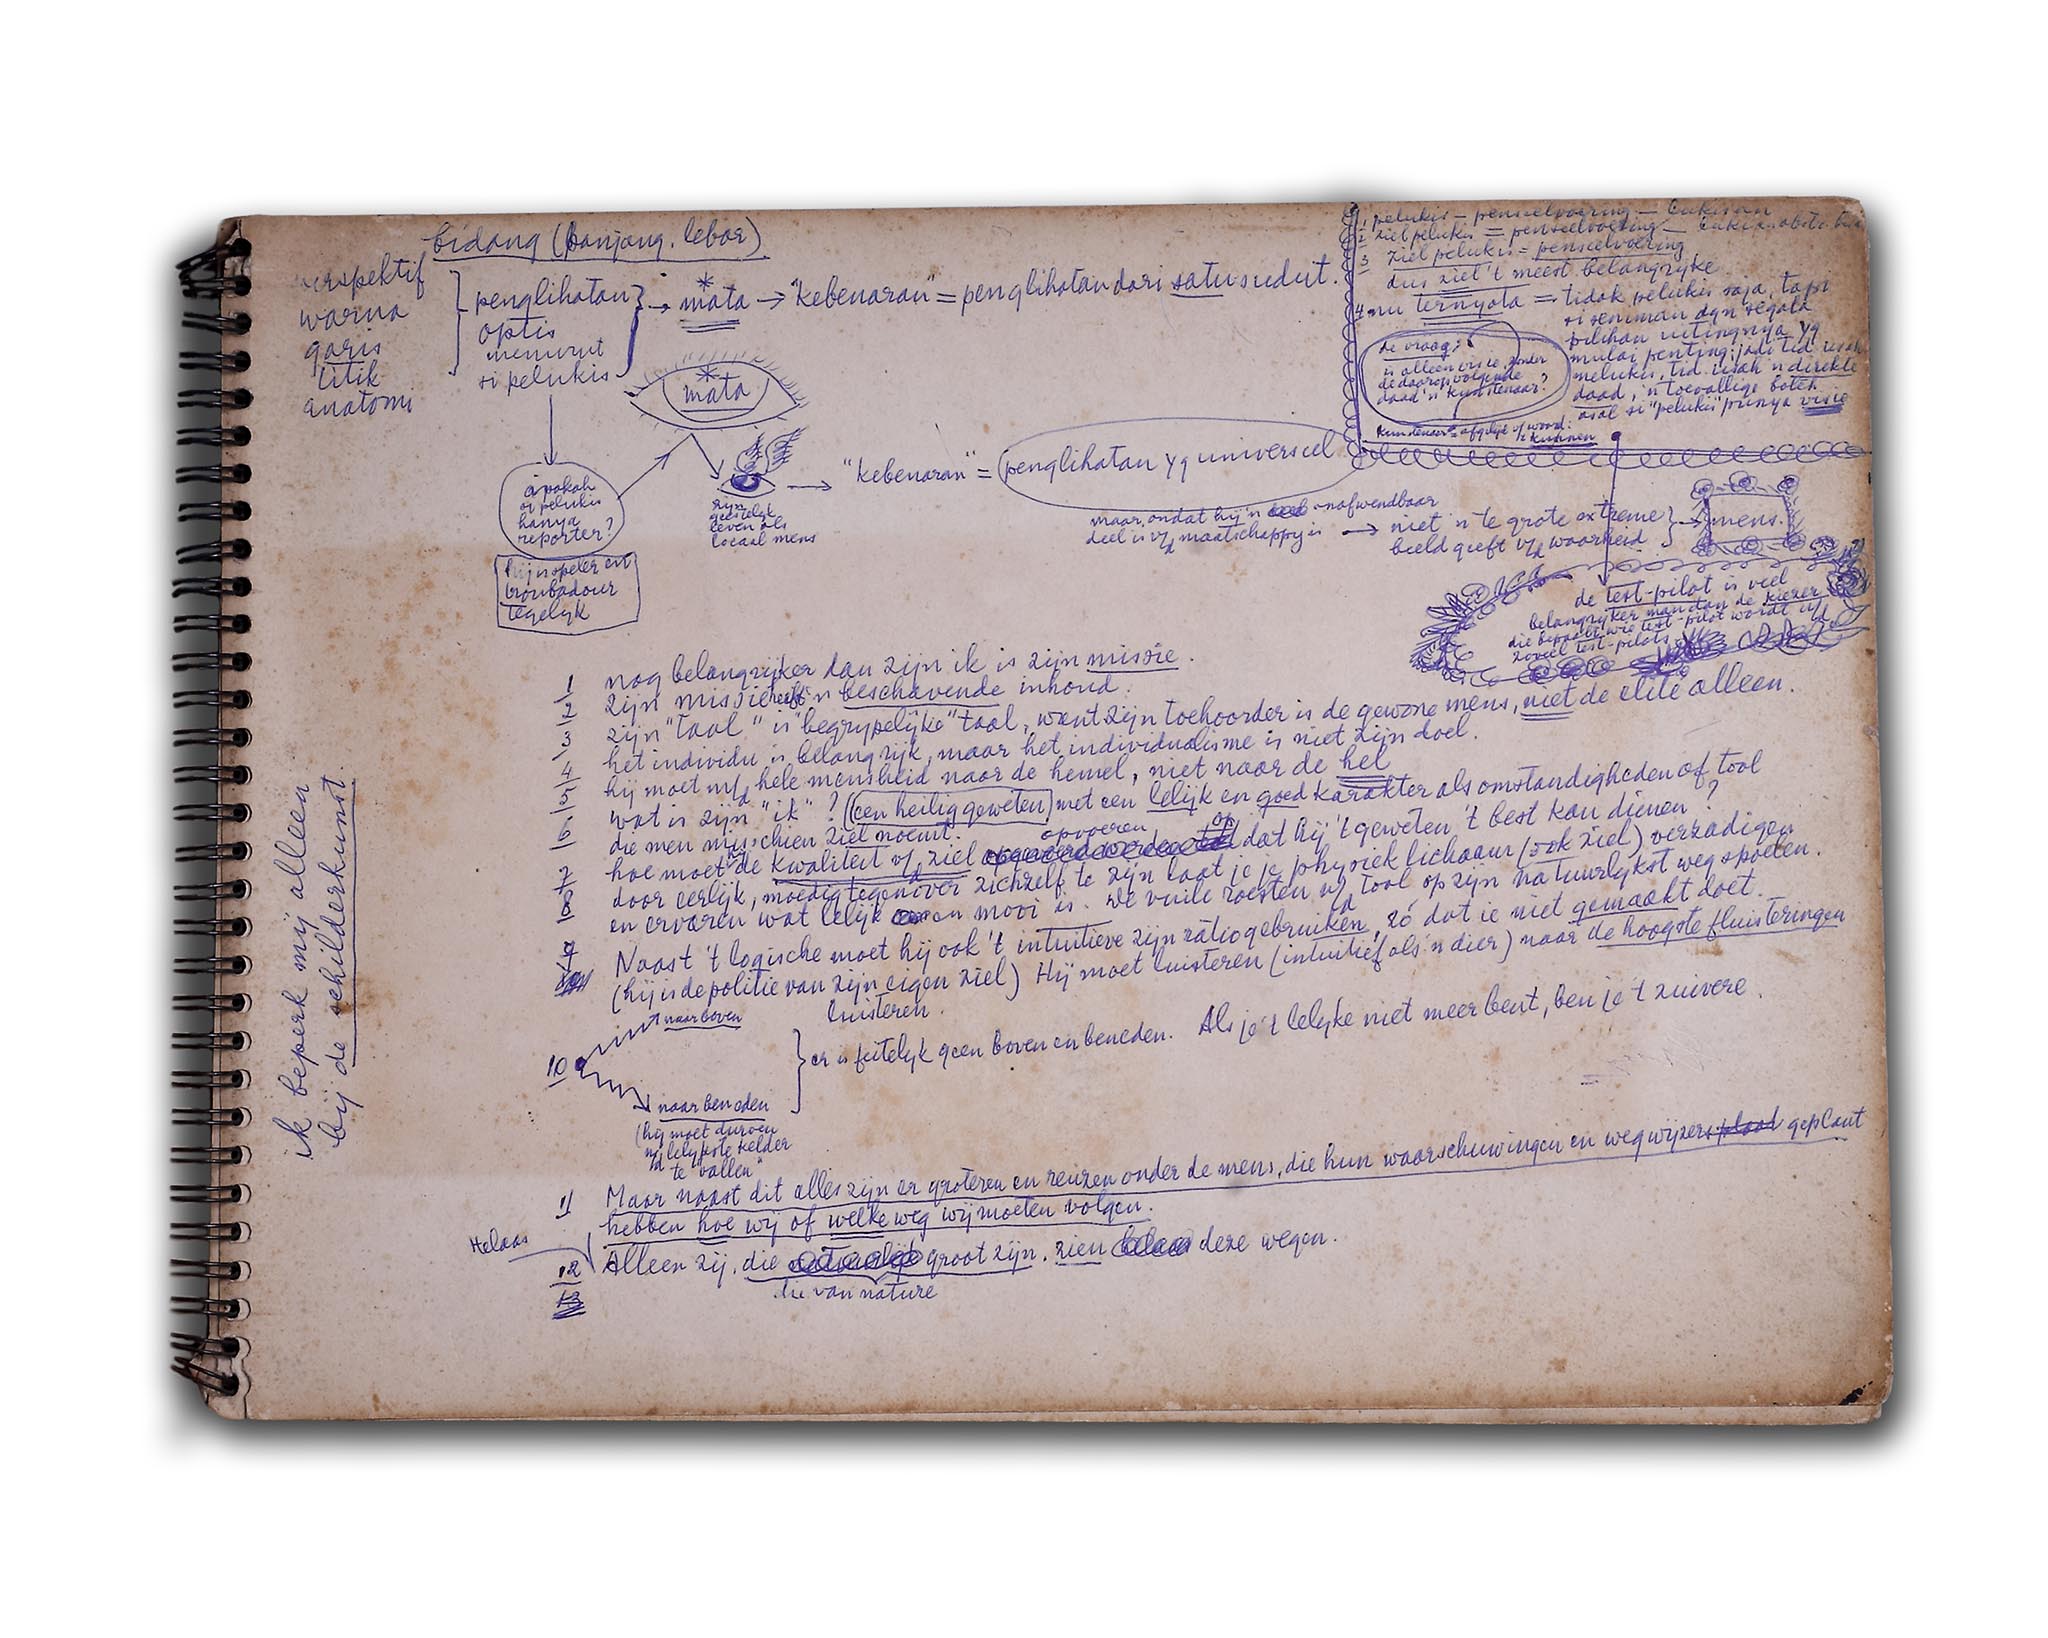 bidang (panjang, lebar)
perspektif
warna
garis
titik
anatomi
penglihatan
optis
menurut
si pelukis
mata → "kebenaran" = penglihatan dari satu sudut.
mata
apakah
si pelukis
hanya
reporter?
hij is speler en
troubadour
tegelijk
zijn
geestelijk
leven als
locaal mens
"kebenaran" = penglihatan yg universeel
maar omdat hij 'n onafwendbaar
deel is v/d maatschappij is → niet 'n te grote extreme
beeld geeft v/d waarheid
→ mens.
1. pelukis – penseelvoering – lukisan
2 ziel pelukis = penseelvoering –
3 ziel pelukis = penseelvoering
dus ziel 't meest belangrijke
4 nu ternyata = tidak pelukis saja, tapi
si seniman dgn segala
pilihan uitingnya yg
mulai penting: jadi tid. usah
melukis, tid. usah 'n direkte
daad, 'n toevallige boleh
asal si "pelukis" punya visie
de vraag:
is alleen visie zonder
de daaropvolgende
daad 'n kunstenaar?
kunstenaar = afgeleid v/h woord:
kunnen
de test-pilot is veel
belangrijker man dan de kiezer
die bepaalt wie test-pilot wordt v/d
zoveel test-pilots
1 nog belangrijker dan zijn ik is zijn missie.
2 zijn missie heeft 'n beschavende inhoud.
3 zijn "taal" is "begrypelijke" taal, want zijn toehoorder is de gewone mens, niet de elite alleen.
4 het individu is belangrijk, maar het individualisme is niet zijn doel.
5 hij moet m/d hele mensheid naar de hemel, niet naar de hel
6 wat is zijn "ik"? (een heilig geweten) met een lelijk en goed karakter als omstandigheden of tool
die men misschien ziel noemt.
7 hoe moet hij de kwaliteit v/d ziel opvoeren op dat hij 't geweten 't best kan dienen?
8 door eerlijk, moedig tegenover zichzelf te zijn laat je je physiek lichaam (ook ziel) verzadigen
en ervaren wat lelijk en mooi is. de vuile roesten v/d tool op zijn natuurlijkst wegspoelen.
9 Naast 't logische moet hij ook 't intuitieve zijn ratio gebruiken, zó dat ie niet gemaakt doet.
(hij is de politie van zijn eigen ziel) Hij moet luisteren (intuitief als 'n dier) naar de hoogste fluisteringen
luisteren.
10 naar boven
er is feitelijk geen boven en beneden. Als je 't lelyke niet meer bent, ben je 't zuivere.
naar beneden
(hij moet durven
i/d lelykste kelder
te "vallen"
11 Maar naast dit alles zijn er groteren en reuzen onder de mens, die hun waarschuwingen en wegwijzers geplant
hebben hoe wij of welke weg wij moeten volgen.
Helaas
12 Alleen zij, die groot zijn, zien deze wegen.
die van nature
13
ik beperk mij alleen
bij de schilderkunst.